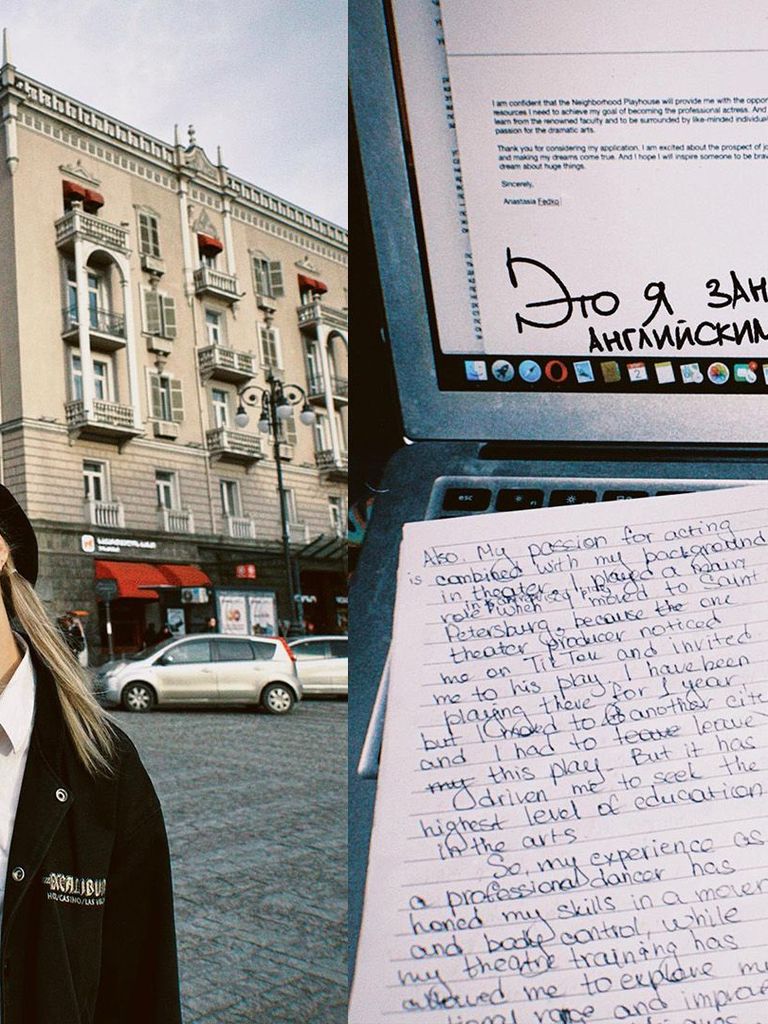 EXCALIBU
HOTEL/CASINO/LAS VE
I am confident that the Neighborhood Playhouse will provide me with the oppor
resources I need to achieve my goal of becoming the professional actress. And
learn from the renowned faculty and to be surrounded by like-minded individu
passion for the dramatic arts.
Thank you for considering my application. I am excited about the prospect of jo
and making my dreams come true. And I hope I will inspire someone to be brav
dream about huge things.
Sincerely,
Anastasia Fedko
Это я зан
английским
esc
Also, My passion for acting
is combined with my background
in theater. I played a main
role when I moved to Saint
Petersburg, because the one
theater producer noticed
me on TikTok and invited
me to his play. I have been
playing there for 1 year
but I moved to another city
and I had to leave leave
my this play. But it has
driven me to seek the
highest level of education
in the arts
So, my experience as
a professional dancer has
honed my skills in a movem
and body control, while
my theatre training has
allowed me to explore my
tional range and improv